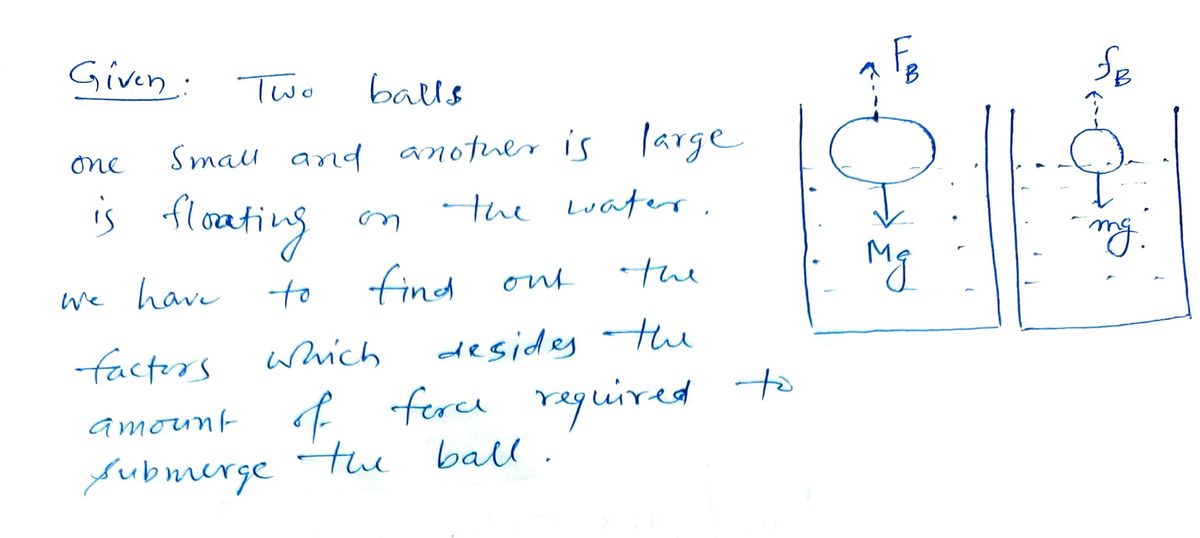 Given: Two balls
one small and another is large
is floating on the water.
we have to find out the
factors which desides the
amount of force required to
submerge the ball.
F_B
Mg
f_B
mg